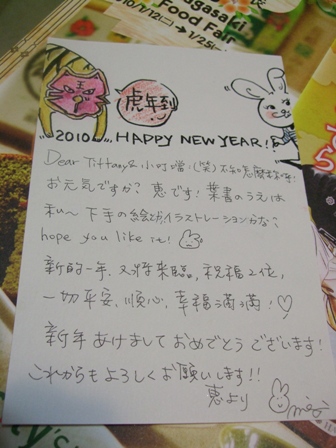 agasaki
Food Fair
2010/1/12(二)→1/25(
虎年到
2010 HAPPY NEW YEAR!
Dear Tiffany & 小叮噹:(笑)
お元気ですか? 恵です! 葉書のうえは
下手の絵
イラストレーションかな?
hope you like it!
新的一年,又將來臨,祝福2位,
一切平安、順心、幸福滿滿!♡
新年あけましておめでとうございます!
これからもよろしくお願いします!!
恵より